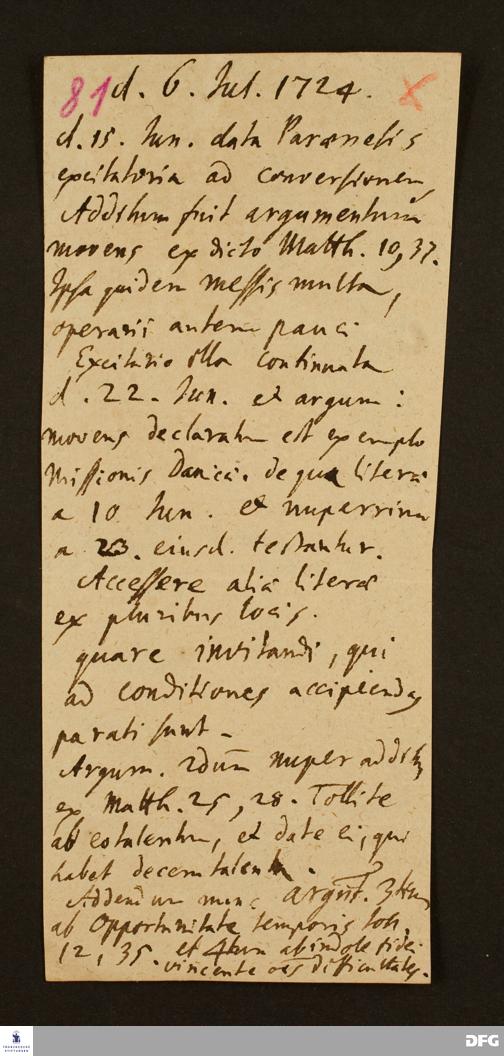 81 d. 6. Jul. 1724.
d. 15. Jun. data Paraenesis
excitatoria ad conversionem,
Additum fuit argumentum
movens ex dicto Matth. 10, 37.
Ipsa quidem messis multa,
operarii autem pauci
Excitatio illa continuata
d. 22. Jun. et argum:
movens declaratum est exemplo
Missionis Danicae. de qua literae
a 10 Jun. et nuperrime
a 23. eiusd. testantur.
Accessere aliae literae
ex pluribus locis.
quare invitandi, qui
ad conditiones accipiendas
parati sunt.
Argum. 2dum nuper additum
ex Matth. 25, 28. Tollite
ab eo talentum, et date ei, qui
habet decem talenta.
Addendum nunc argum. 3tium
ab Opportunitate temporis Joh.
12, 35. et 4tum ab indole fidei
vincente oes difficultates.
FRANCKESCHE
STIFTUNGEN
DFG